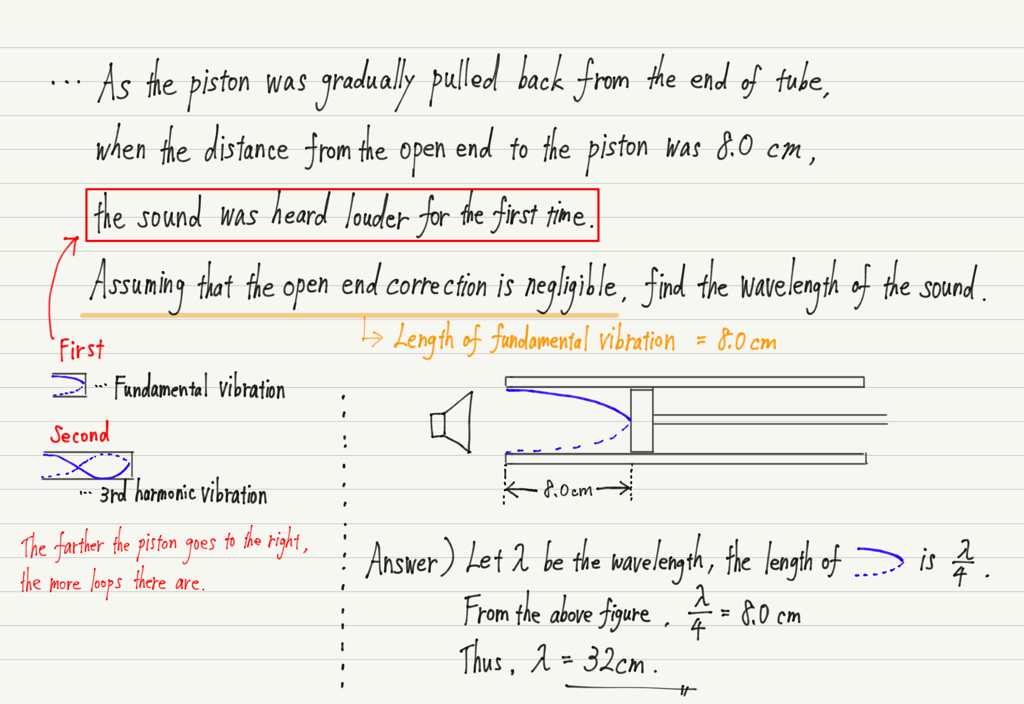 ... As the piston was gradually pulled back from the end of tube,
when the distance from the open end to the piston was 8.0 cm,
the sound was heard louder for the first time.
Assuming that the open end correction is negligible, find the wavelength of the sound.
↳ Length of fundamental vibration = 8.0cm
First
... Fundamental vibration
Second
... 3rd harmonic vibration
The farther the piston goes to the right,
the more loops there are.
8.0cm
Answer) Let λ be the wavelength, the length of is λ/4.
From the above figure, λ/4 = 8.0 cm
Thus, λ = 32cm.